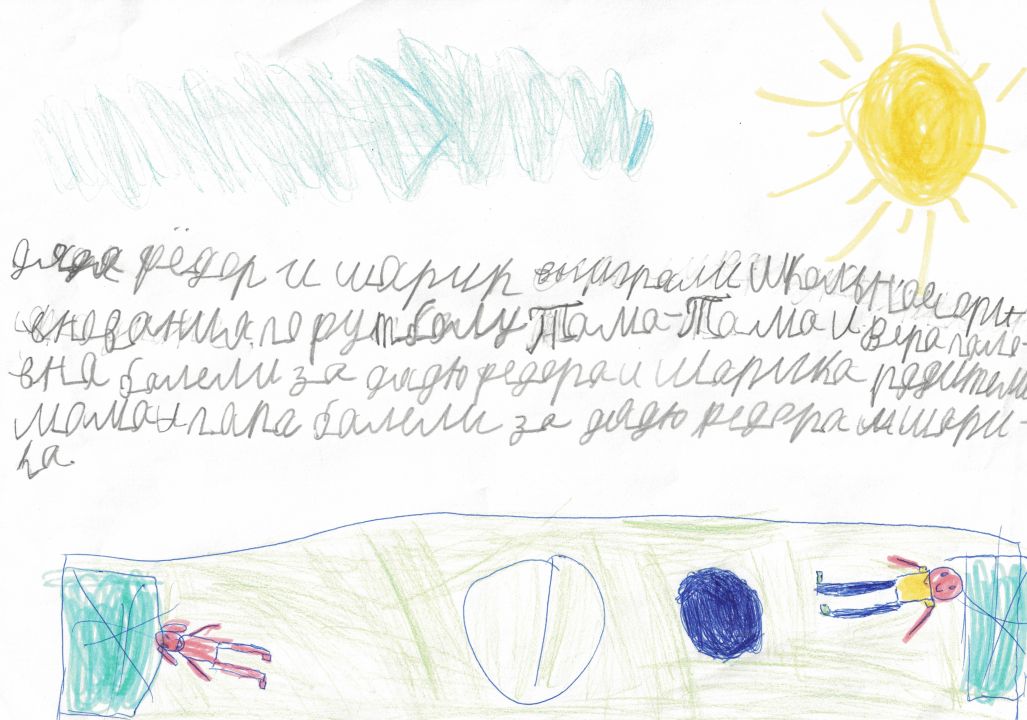 дядя фёдор и шарик выиграли школьное сорин
внования по футболу Тама-Тама и Вера пало-
вна балели за дядю федора и шарика радители
мама и папа балели за дядю федора и шари-
ка